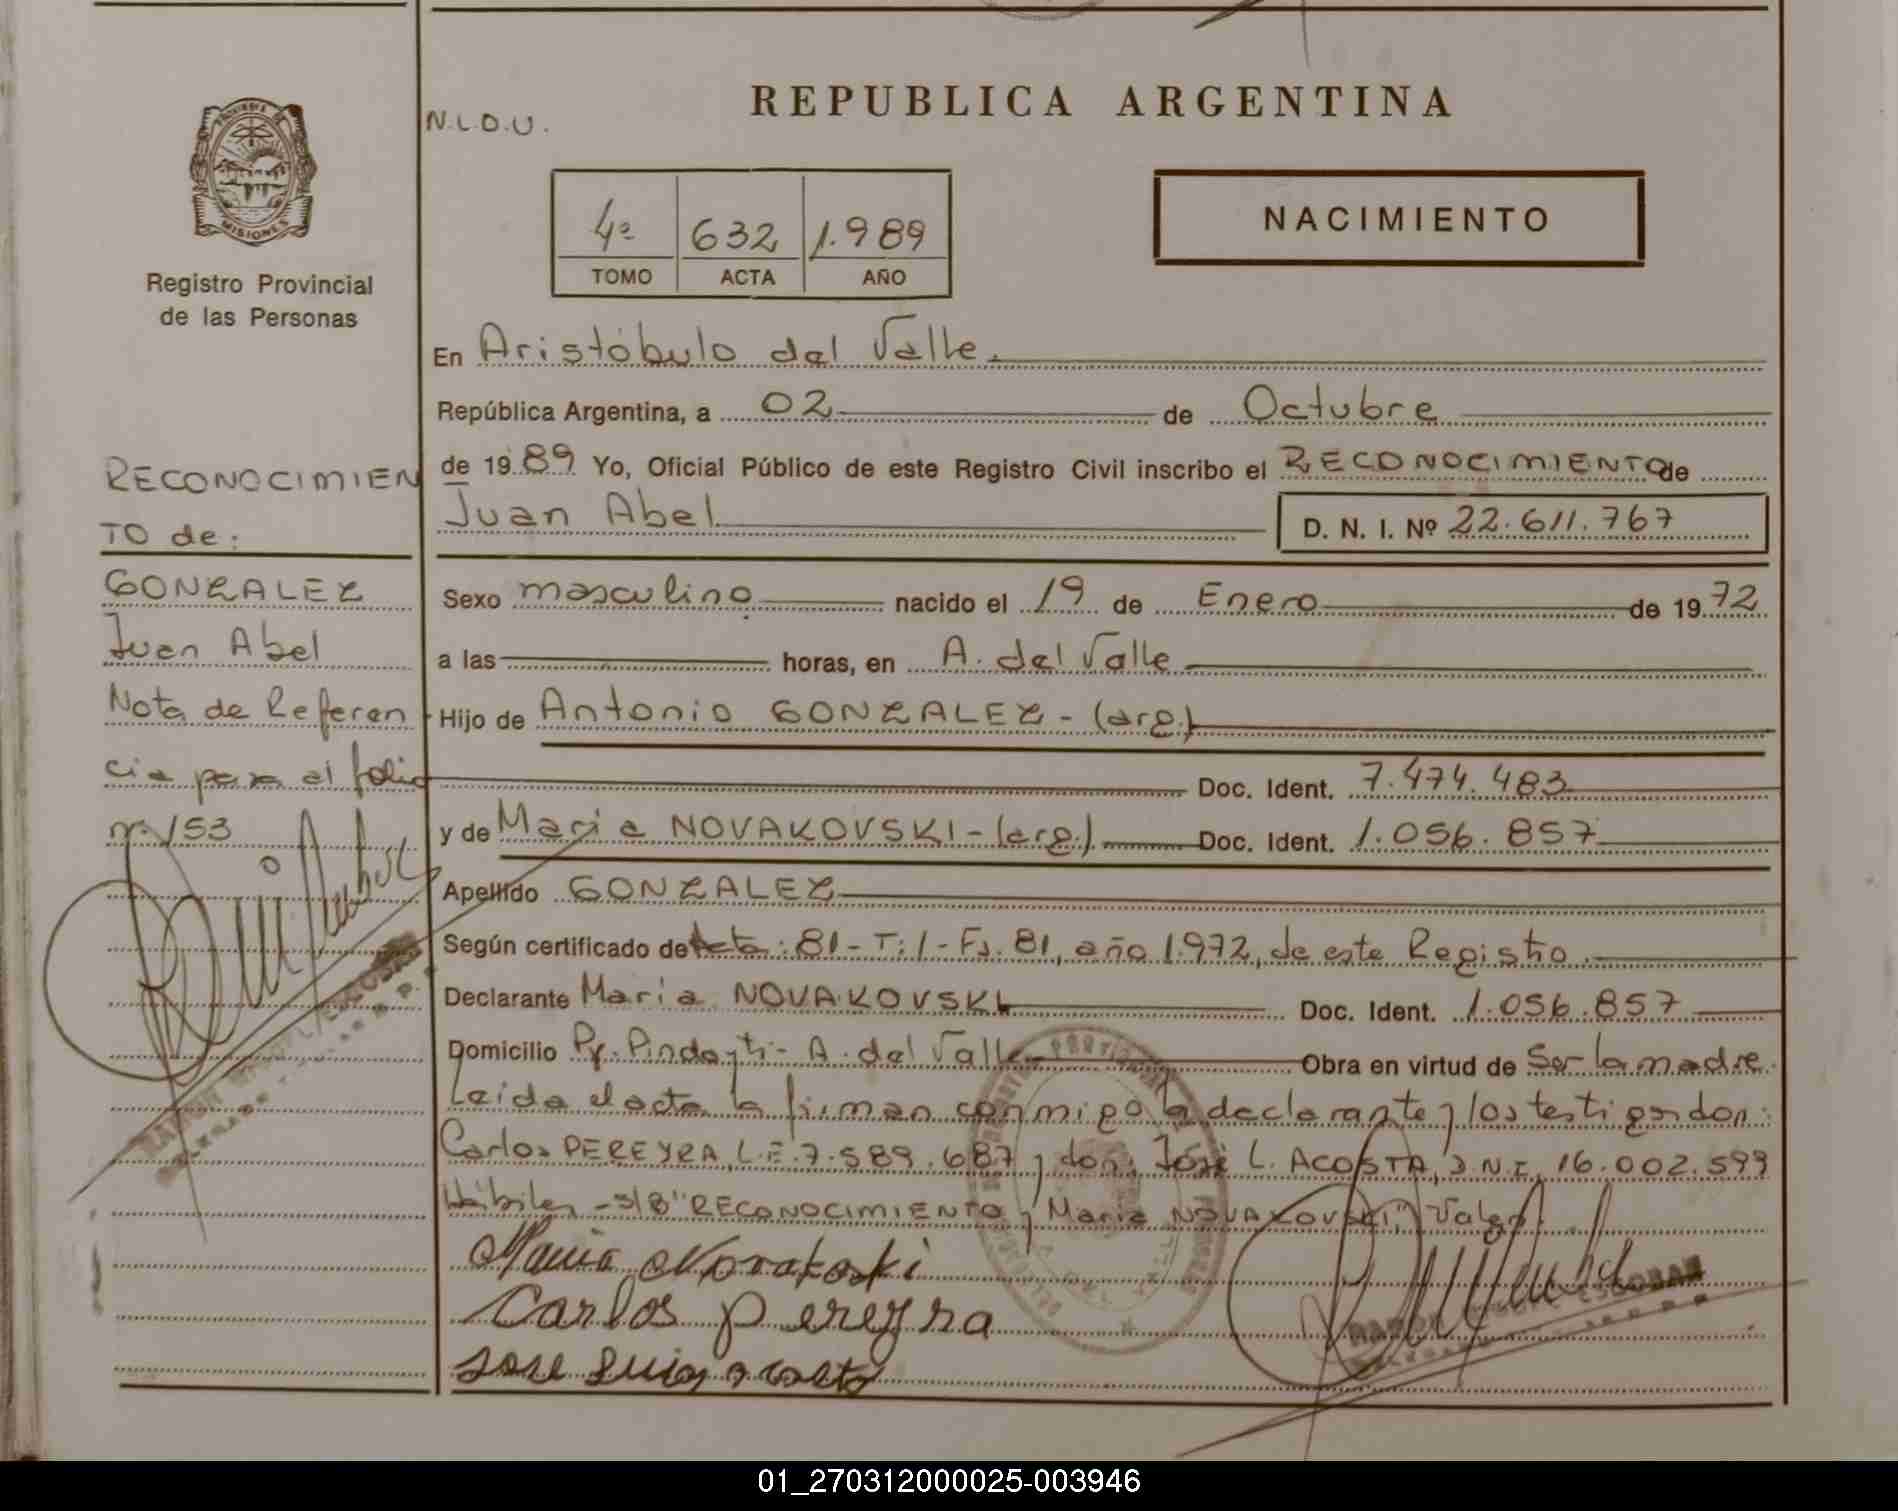 REPUBLICA ARGENTINA
N.L.O.U.
PROVINCIA DE
MISIONES
Registro Provincial
de las Personas
4ª 632 1.989
TOMO ACTA AÑO
NACIMIENTO
RECONOCIMIEN
TO de:
GONZALEZ
Juan Abel
Nota de Referen
cia para el folio
nº 153
En Aristóbulo del Valle.
República Argentina, a 02 de Octubre
de 1989 Yo, Oficial Público de este Registro Civil inscribo el RECONOCIMIENTO de
Juan Abel D. N. I. Nº 22.611.767
Sexo masculino nacido el 19 de Enero de 1972
a las horas, en A. del Valle
Hijo de Antonio GONZALEZ - (arg.)
Doc. Ident. 7.474.483
y de Maria NOVAKOVSKI - (arg.) Doc. Ident. 1.056.857
Apellido GONZALEZ
Según certificado de Acta: 81 - T: 1 - Fº. 81, año 1.972, de este Registro.
Declarante Maria NOVAKOVSKI Doc. Ident. 1.056.857
Domicilio Pr. Pindayti - A. del Valle Obra en virtud de Ser la madre.
Leida el acta la firman conmigo la declarante y los testigos don:
Carlos PEREYRA, L.E. 7.589.687 y don: José L. ACOSTA, D.N.I. 16.002.599
Hábiles - S/B "RECONOCIMIENTO y Maria NOVAKOVSKI," Valen.
Maria Novakoski
Carlos Pereyra
Jose Luis Acosta
RAMON ESCOBAR
01_270312000025-003946